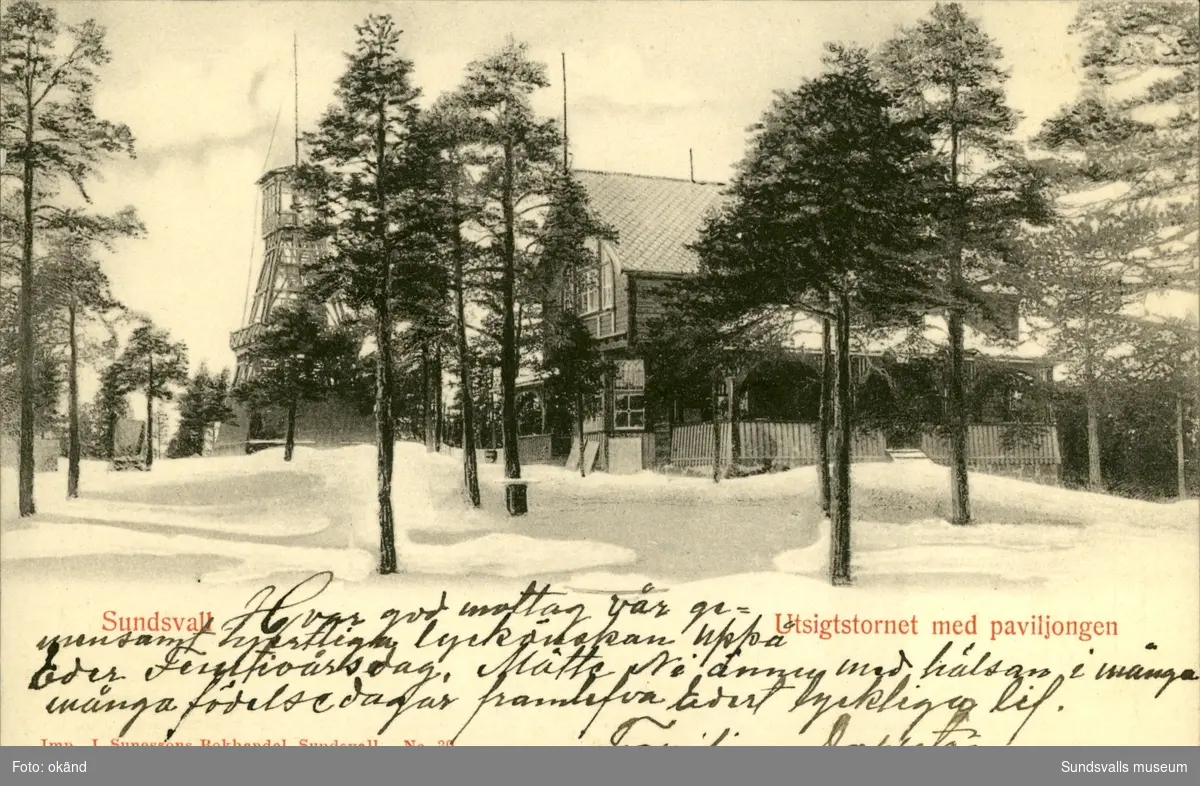 Sundsvall
Utsigtstornet med paviljongen
Hvar god mottag vår ge=
mensamt hjertliga lyckönskan uppå
Eder Femtioårsdag. Måtte Ni ännu med hälsan i många
många födelsedagar framlefva Edert lyckliga lif.
Imp. J. Sunessons Bokhandel, Sundsvall. No.
Foto: okänd
Sundsvalls museum